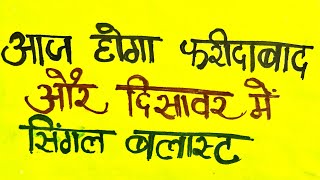 आज होगा फरीदाबाद
और दिसावर में
सिंगल बलास्ट